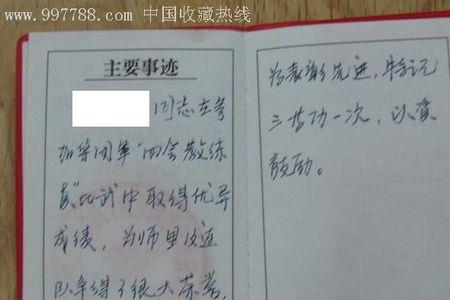 www.997788.com 中国收藏热线
主要事迹
同志在参
加集团军“四会教练
员”比武中取得优异
成绩，为师里及连
队争得了很大荣誉，
为表彰先进，特记
三等功一次，以资
鼓励。